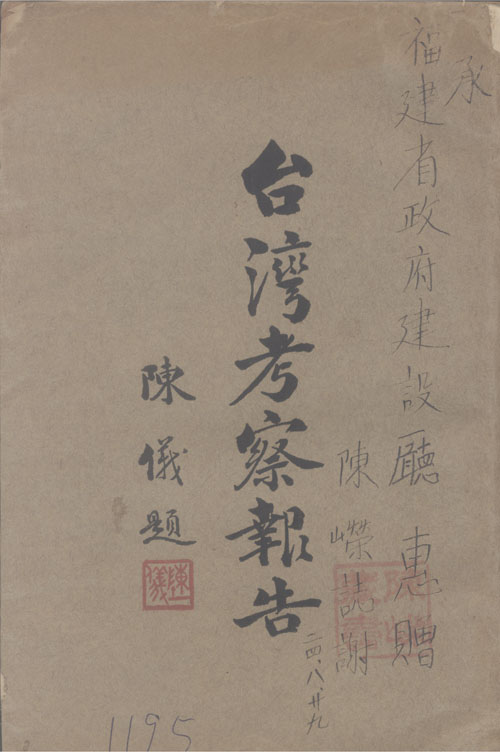 承
福建省政府建設廳惠贈
陳嶸誌謝
二四、八、廿九
台灣考察報告
陳儀題
陳儀
1195